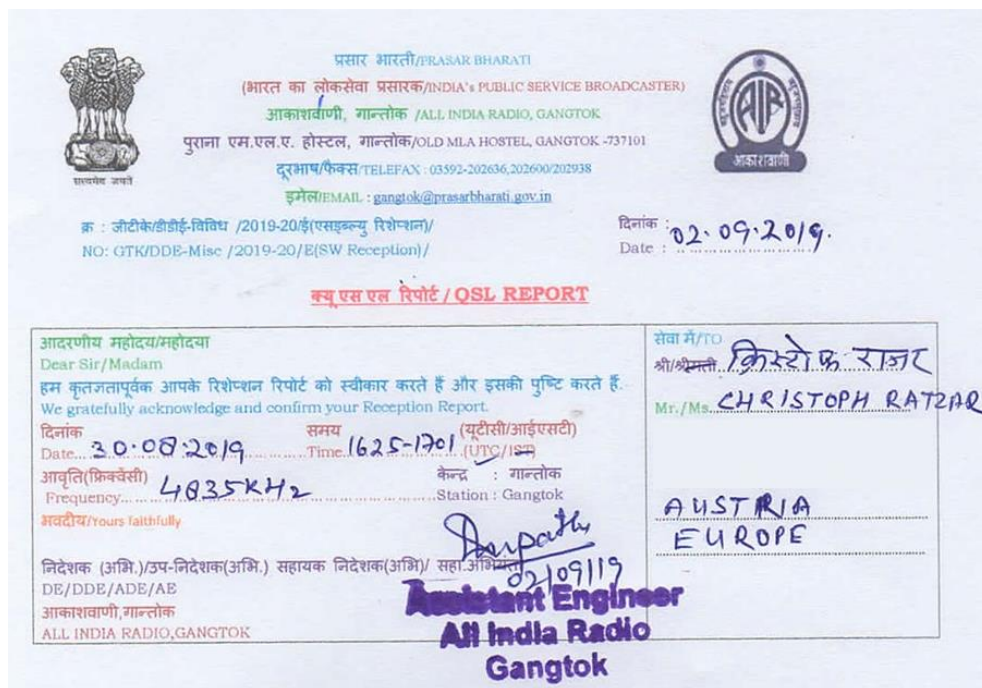 प्रसार भारती/PRASAR BHARATI
(भारत का लोकसेवा प्रसारक/INDIA's PUBLIC SERVICE BROADCASTER)
आकाशवाणी, गान्तोक /ALL INDIA RADIO, GANGTOK
पुराना एम.एल.ए. होस्टल, गान्तोक/OLD MLA HOSTEL, GANGTOK -737101
दूरभाष/फैक्स/TELEFAX : 03592-202636,202600/202938
इमेल/EMAIL : gangtok@prasarbharati.gov.in
सत्यमेव जयते
AIR
आकाशवाणी
क्र : जीटीके/डीडीई-विविध /2019-20/ई(एसडब्ल्यु रिशेप्शन)/
NO: GTK/DDE-Misc /2019-20/E(SW Reception)/
दिनांक :
Date : 02.09.2019.
क्यू एस एल रिपोर्ट / QSL REPORT
आदरणीय महोदय/महोदया
Dear Sir/Madam
हम कृतज्ञतापूर्वक आपके रिशेप्शन रिपोर्ट को स्वीकार करते हैं और इसकी पुष्टि करते हैं.
We gratefully acknowledge and confirm your Reception Report.
दिनांक समय (यूटीसी/आईएसटी)
Date...30.08.2019 Time..1625-1701 (UTC/IST)
आवृति(फ्रिक्वेंसी) केन्द्र : गान्तोक
Frequency......4835KHz Station : Gangtok
भवदीय/Yours faithfully
02/09/19
निदेशक (अभि.)/उप-निदेशक(अभि.) सहायक निदेशक(अभि)/ सहा.अभियंता
DE/DDE/ADE/AE
आकाशवाणी,गान्तोक
ALL INDIA RADIO,GANGTOK
Assistant Engineer
All India Radio
Gangtok
सेवा में/TO
श्री/श्रीमती क्रिस्टोफ राजर
Mr./Ms. CHRISTOPH RATZAR
AUSTRIA
EUROPE